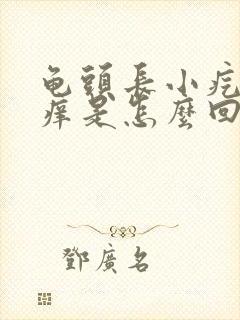 龟頭長小疙
痒是怎麼回
鄧廣名